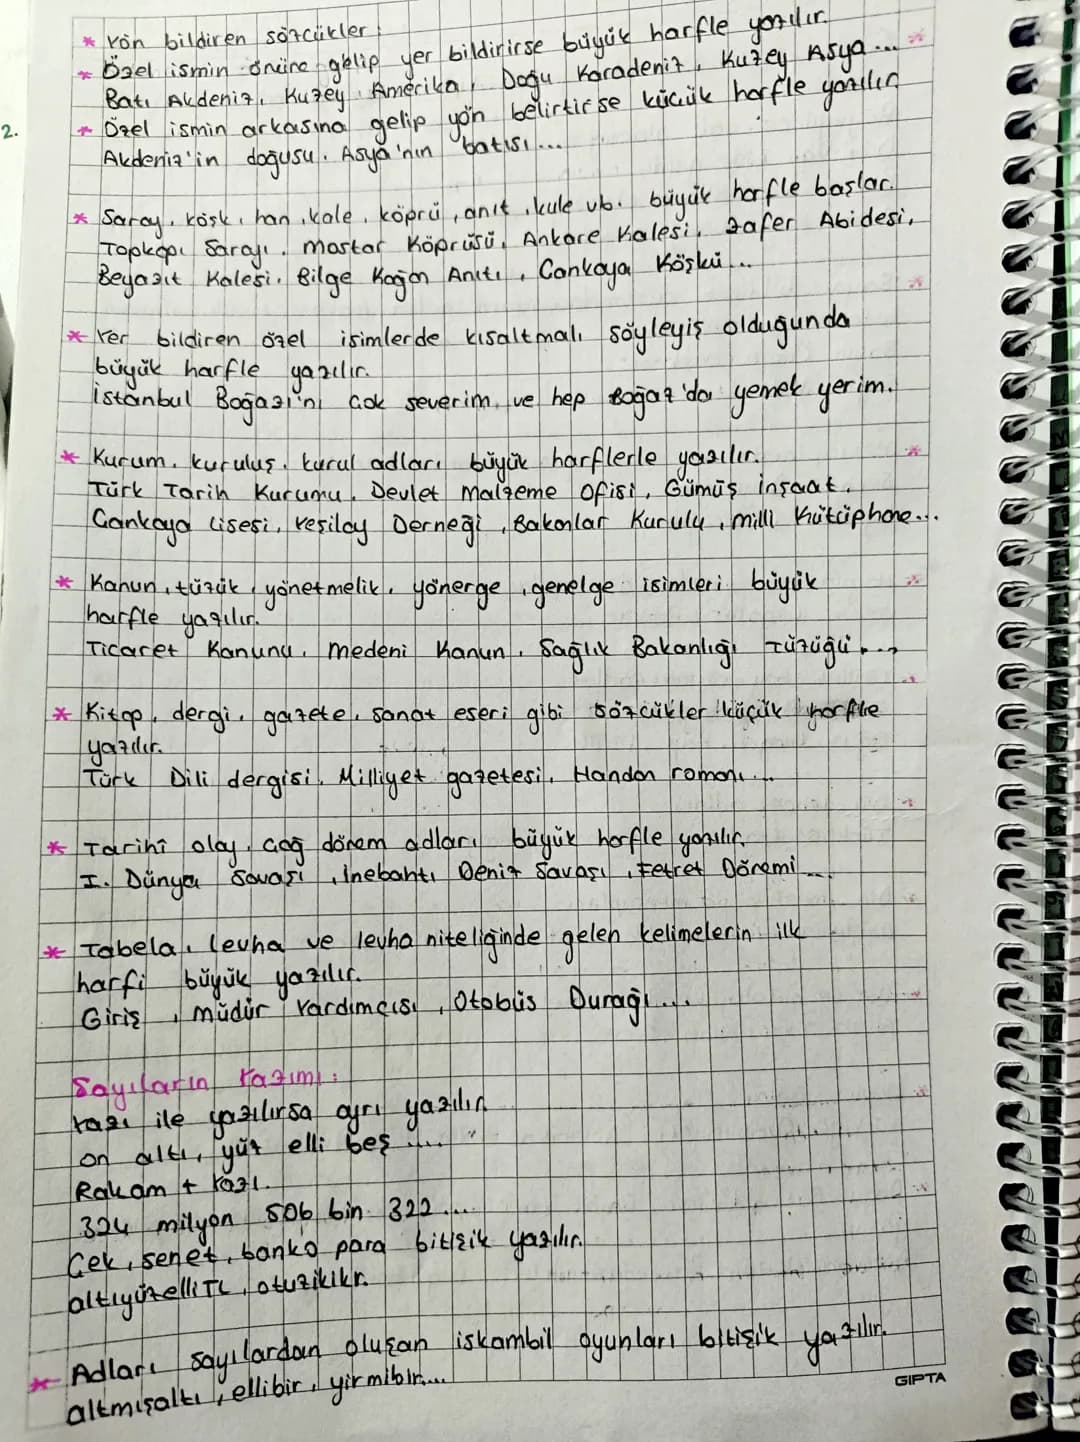 * Yön bildiren sözcükler:
* Özel ismin önüne gelip yer bildirirse büyük harfle yazılır.
Batı Akdeniz, Kuzey Amerika, Doğu Karadeniz, Kuzey Asya...
2.
* Özel ismin arkasına gelip yön belirtirse küçük harfle yazılır.
Akdeniz'in doğusu, Asya'nın batısı...
* Saray, köşk, han, kale, köprü, anıt, kule vb. büyük harfle başlar.
Topkapı Sarayı, Mostar Köprüsü, Ankara Kalesi, Zafer Abidesi,
Beyazıt Kalesi, Bilge Kağan Anıtı, Çankaya Köşkü...
* Yer bildiren özel isimlerde kısaltmalı söyleyiş olduğunda
büyük harfle yazılır.
İstanbul Boğazı'nı çok severim ve hep Boğaz'da yemek yerim.
* Kurum, kuruluş, kurul adları büyük harflerle yazılır.
Türk Tarih Kurumu, Devlet Malzeme Ofisi, Gümüş İnşaat,
Çankaya Lisesi, Yeşilay Derneği, Bakanlar Kurulu, Milli Kütüphane...
* Kanun, tüzük, yönetmelik, yönerge, genelge isimleri büyük
harfle yazılır.
Ticaret Kanunu, Medeni Kanun, Sağlık Bakanlığı Tüzüğü...
* Kitap, dergi, gazete, sanat eseri gibi sözcükler küçük harfle
yazılır.
Türk Dili dergisi, Milliyet gazetesi, Handan romanı...
* Tarihî olay, çağ dönem adları büyük harfle yazılır.
I. Dünya Savaşı, İnebahtı Deniz Savaşı, Fetret Dönemi...
* Tabela, levha ve levha niteliğinde gelen kelimelerin ilk
harfi büyük yazılır.
Giriş, Müdür Yardımcısı, Otobüs Durağı...
Sayıların Yazımı:
Yazı ile yazılırsa ayrı yazılır.
on altı, yüz elli beş ....
Rakam + Yazı.
324 milyon 506 bin 322...
Çek, senet, banko para bitişik yazılır.
altıyüzelliTL, otuzikikr.
* Adları sayılardan oluşan iskambil oyunları bitişik yazılır.
altmışaltı, ellibir, yirmibir...
GIPTA